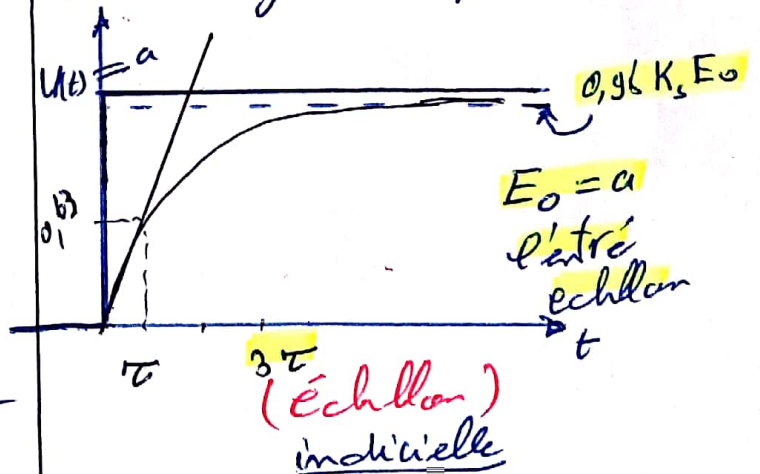 a
U(t)
0,96 Ks Eo
0,63
Eo = a
l'entré
echllon
t
τ
3τ
(échllon)
indicielle